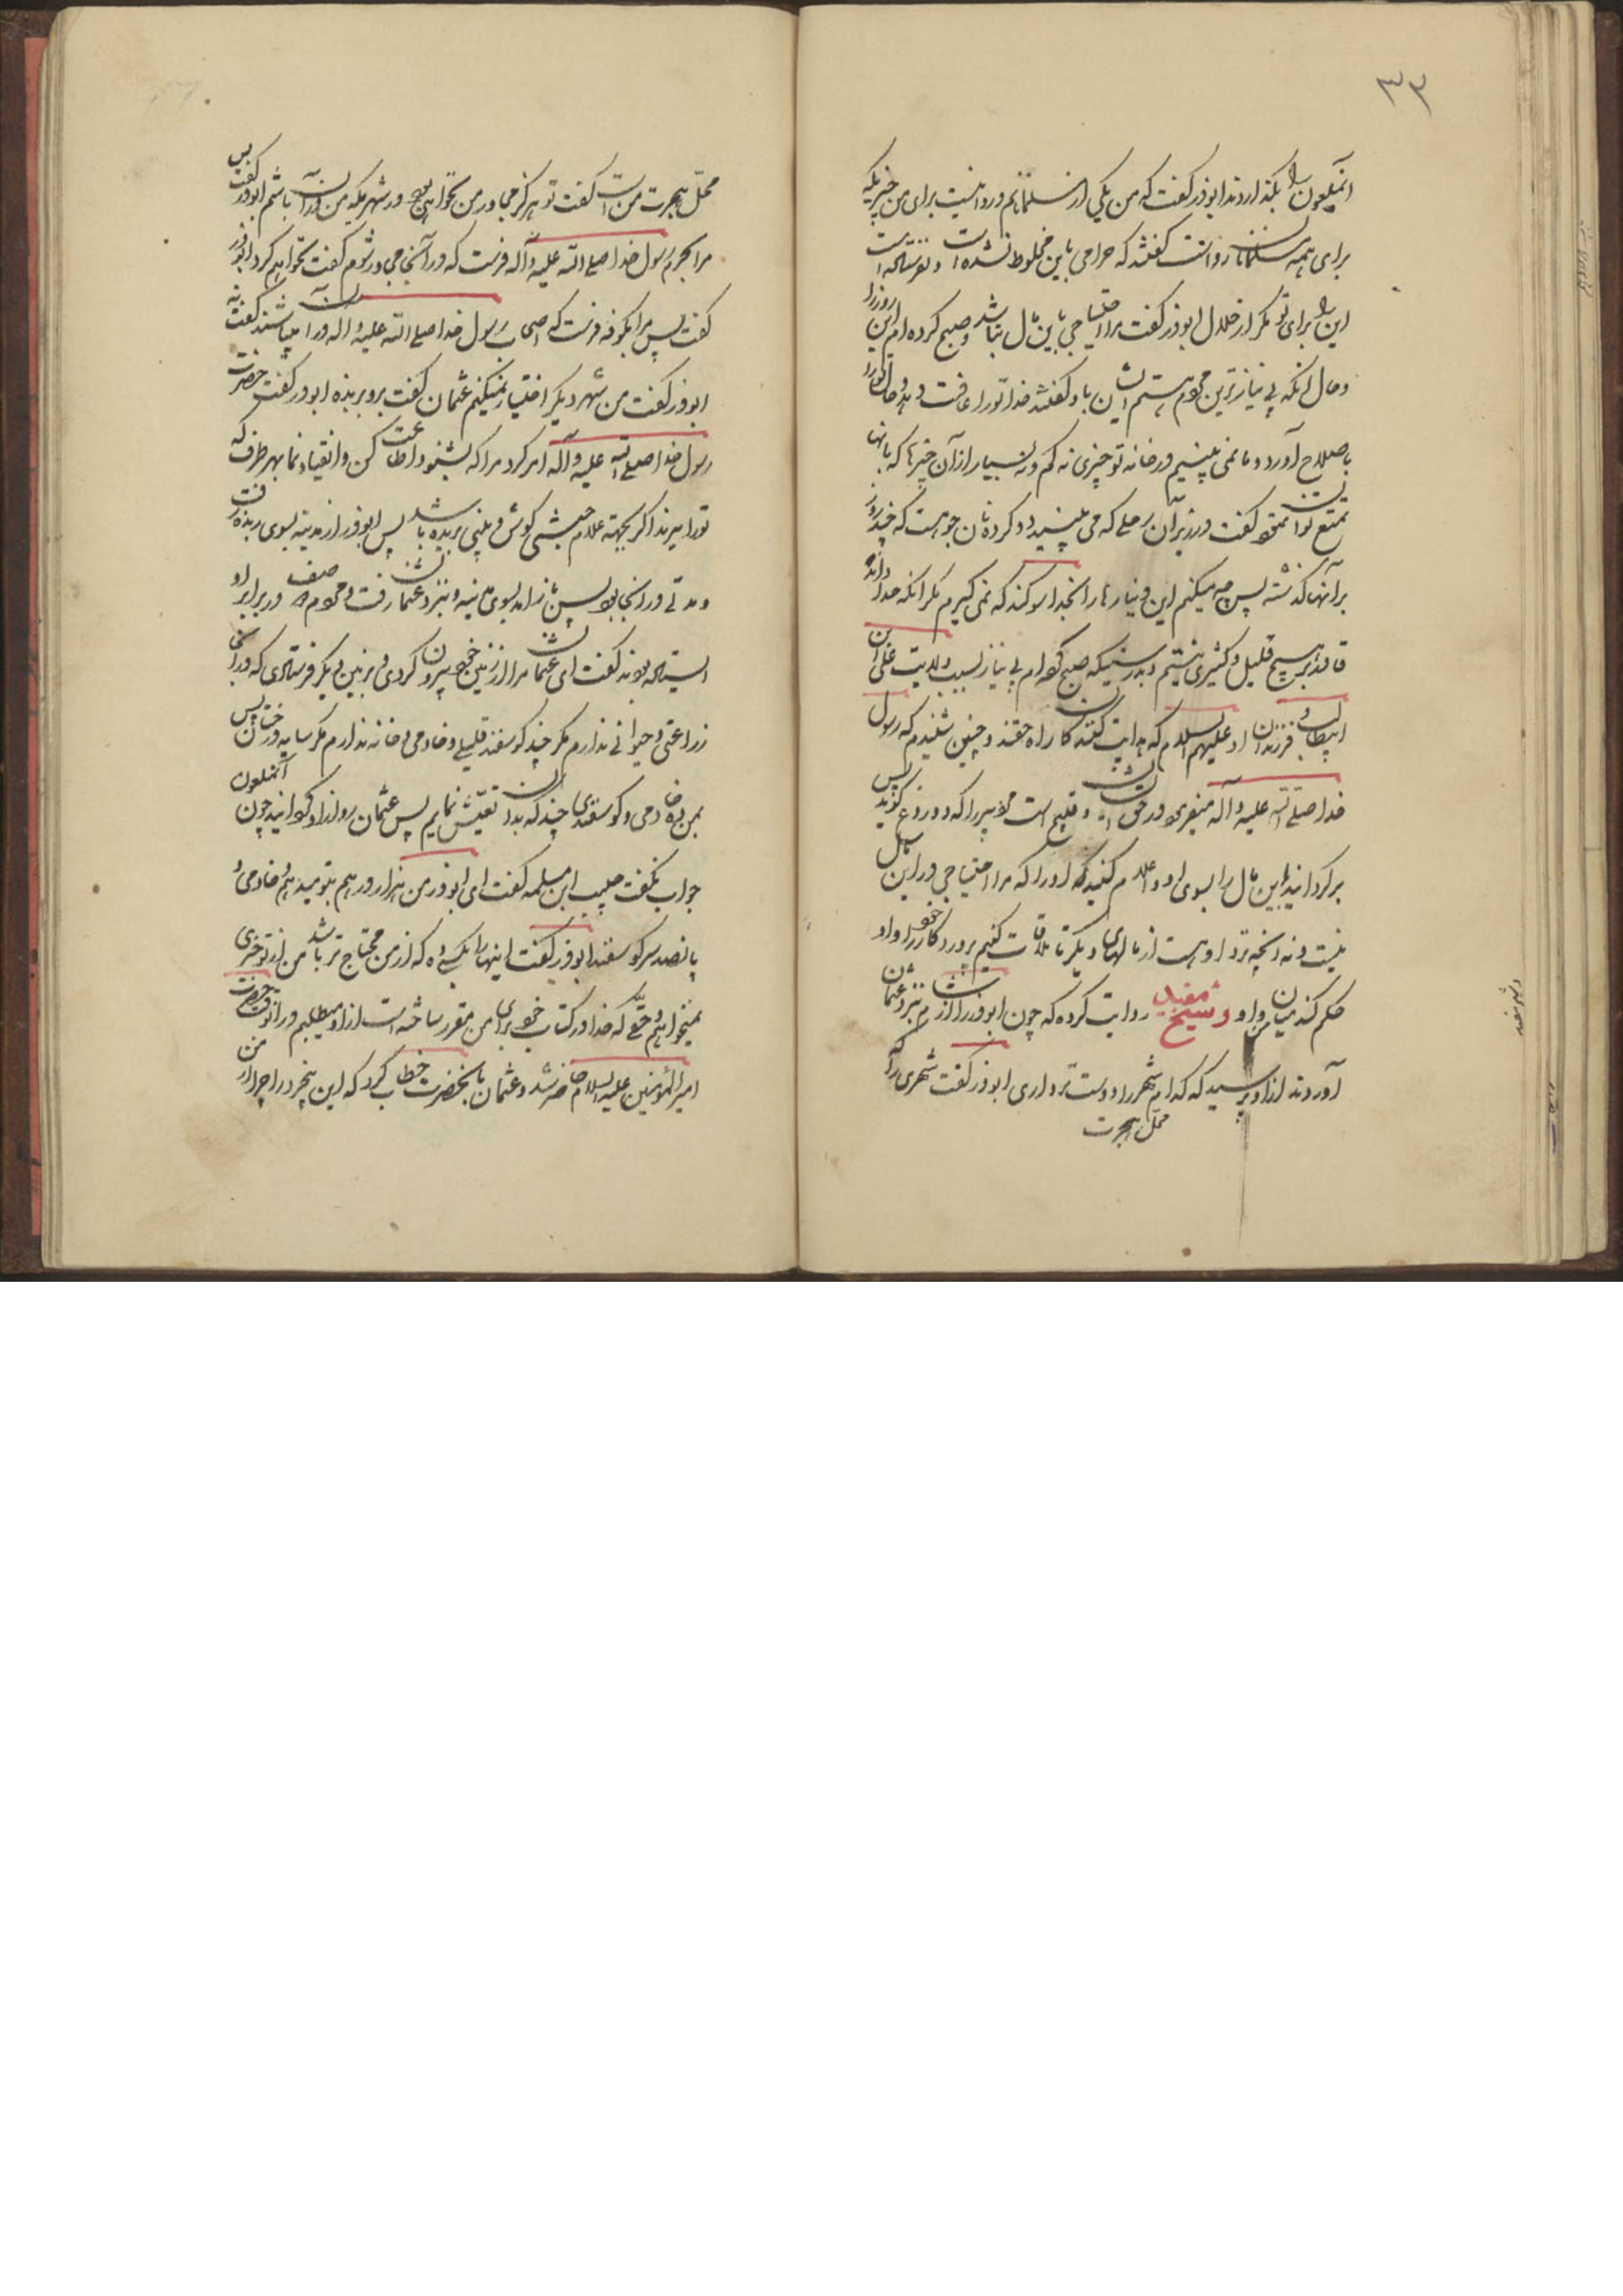 ۳۳
آنملعون را بگذاردند ابوذر گفت که من یکی از مسلمانانم و روا نیست برای من چیزیکه
برای همه مسلمانان روا نیست گفتند که حرامی باین مخلوط نشده است و نفرستاده است
این را برای تو مگر از حلال ابوذر گفت مرا احتیاجی باین مال نباشد و صبح کرده‌ام این روز را
و حال آنکه بی نیازترین مردم هستم ایشان باو گفتند خدا تو را عافیت دهد و حال تو را
باصلاح آورد و ما نمی بینیم در خانه تو چیزی نه کم و نه بسیار از آن چیزها که بانها
تمتع توان نمود گفت در زیر آن رحلی که می بینید دو گرده نان جو هست که چند روز
بر آنها گذشته پس چه میکنم این دینارها را بخدا سوگند که نمی گیرم مگر آنکه خدا داند
قادر بر هیچ قلیل و کثیری نیستم و بدرستیکه صبح کرده‌ام بی نیاز بسبب ولایت علی ابن
ابیطالب و فرزندان او علیهم السلام که هدایت کنندگان راه حقند و چنین شنیدم که رسول
خدا صلی الله علیه و آله میفرمود در حق ایشان و قبیح است مرد پیر را که دروغ گوید پس
برگردانید این مال را بسوی او و اعلام کنید که او را که مرا احتیاجی در این مال
نیست و نه آنچه نزد او هست از مالهای دیگر تا ملاقات کنیم پروردگار خود را و او
حکم کند میان من و او و شیخ مفید روایت کرده که چون ابوذر را از شام بنزد عثمان
آوردند از او پرسید که کدام شهر را دوست تر داری ابوذر گفت شهری را که
محل هجرت
محل هجرت من است گفت تو هرگز مجاور من نخواهی بود در شهریکه من در آن باشم ابوذر گفت پس
مرا بحرم رسول خدا صلی الله علیه و آله فرست که در آنجا مجاور شوم گفت نخواهم کرد ابوذر
گفت پس مرا بکوفه فرست که اصحاب رسول خدا صلی الله علیه و اله در آن میباشند گفت نه
ابوذر گفت من شهر دیگر اختیار نمیکنم عثمان گفت برو بربذه ابوذر گفت حضرت
رسول خدا صلی الله علیه و آله امر کرد مرا که بشنو و اطاعت کن و انقیاد نما بهر طرف که
تو را میبرند اگر بجهة غلام حبشی گوش و بینی بریده باشد پس ابوذر از مدینه بسوی ربذه رفت
و مدتی در آنجا بود پس باز آمد بسوی مدینه و بنزد عثمان رفت و مردم دو صف در برابر او
ایستاده بودند گفت ای عثمان مرا از زمین خود بیرون کردی و بزمین دیگر فرستادی که در آنجا
زراعتی و حیوانی ندارم مگر چند گوسفند قلیلی و خادمی و خانه ندارم مگر سایه درختان پس
بمن ده خادمی و گوسفندی چند که بدان تعیش نمایم پس عثمان رو از او گردانید چون آنملعون
جواب نگفت حبیب ابن مسلمه گفت ای ابوذر من هزار درهم بتو میدهم و خادمی و
پانصد سر گوسفند ابوذر گفت اینها را بکسی ده که از من محتاج تر باشد من از تو چیزی
نمیخواهم و حقی که خدا در کتاب خود برای من مقرر ساخته است از او میطلبم در آنوقت حضرت
امیرالمؤمنین علیه السلام حاضر شد و عثمان بانحضرت خطاب کرد که این بیخرد را چرا از من